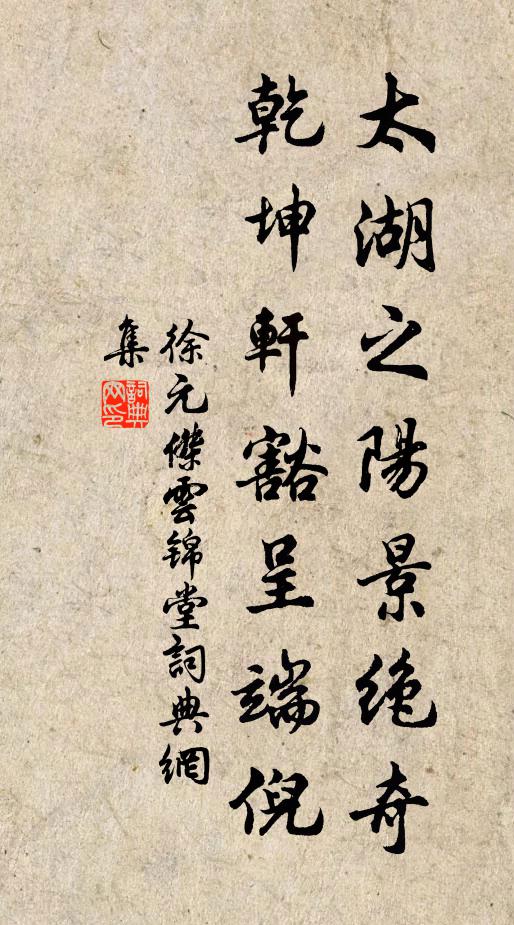 太湖之陽景絶奇
乾坤軒豁呈端倪
徐元傑雲錦堂詞典網
集
詞典
网印